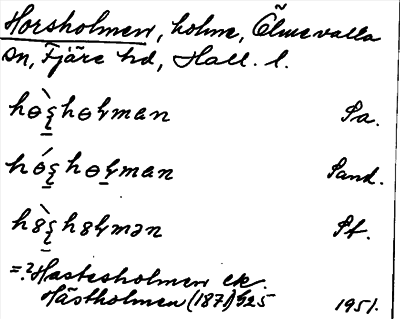 Horsholmen, holme, Ölmevalla
sn, Fjäre hd, Hall. l.
hɵ̀ʂhɵɫman Sa.
hɵ́ʂhɵɫman Sand.
h8̀ʂh8ɫmən Sf.
=? Hastesholmen ek.
Hästholmen (1871) 1951.